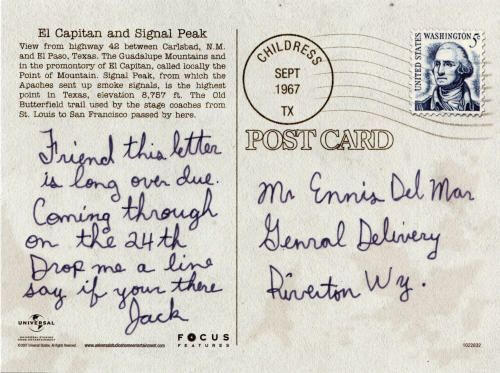 El Capitan and Signal Peak
View from highway 42 between Carlsbad, N.M.
and El Paso, Texas. The Guadalupe Mountains and
in the promontory of El Capitan, called locally the
Point of Mountain. Signal Peak, from which the
Apaches sent up smoke signals, is the highest
point in Texas, elevation 8,757 ft. The Old
Butterfield trail used by the stage coaches from
St. Louis to San Francisco passed by here.
Friend this letter
is long over due.
Coming through
on the 24th
Drop me a line
say if your there
Jack
UNIVERSAL
UNIVERSAL STUDIOS
HOME ENTERTAINMENT
©2007 Universal Studios. All Rights Reserved.
www.universalstudioshomeentertainment.com
FOCUS
FEATURES
CHILDRESS
SEPT
1967
TX
UNITED STATES
WASHINGTON
5c
POST CARD
Mr Ennis Del Mar
Genral Delivery
Riverton Wy.
1022832